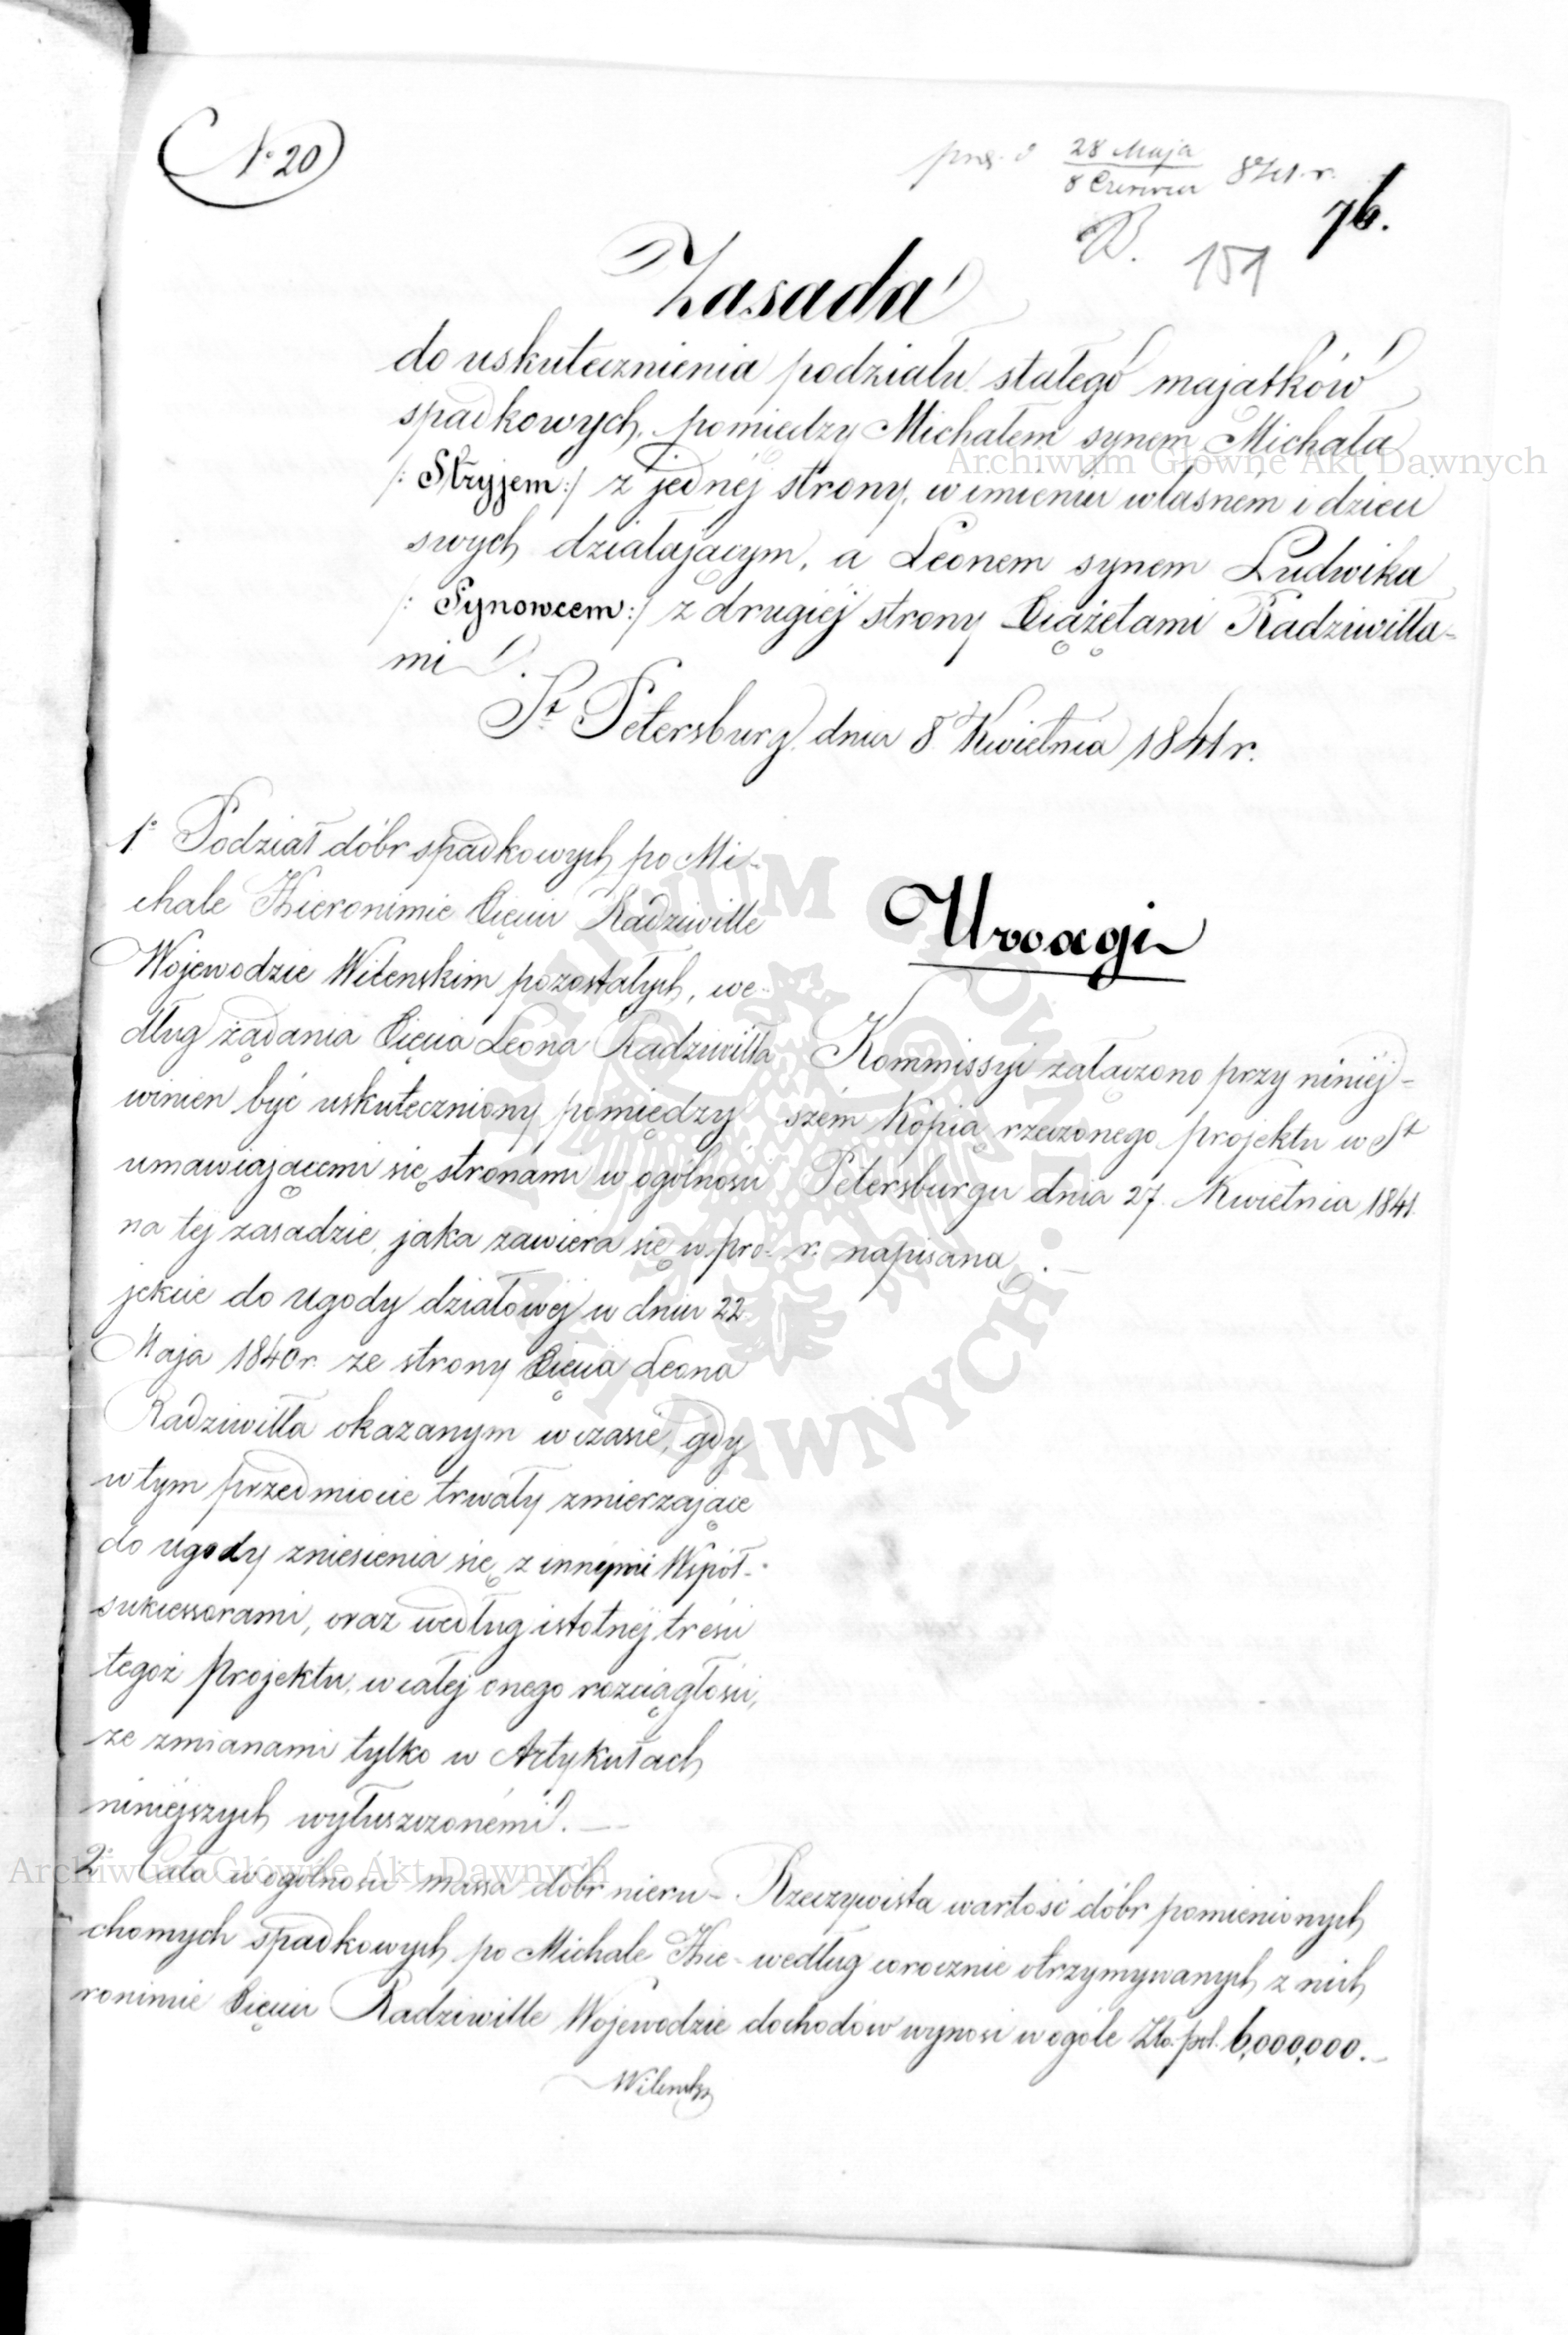 N. 20
28 Maja
8 Czerwca 841. r.
76.
B. 151
Zasada
do uskutecznienia podziału stałego majątków
spadkowych, pomiędzy Michałem synem Michała
/: Stryjem :/ z jednéj strony, w imieniu własném i dzieci
swych działającym, a Leonem synem Ludwika
/: Synowcem :/ z drugiéj strony Xiążętami Radziwiłła-
mi.
St Petersburg dnia 8 Kwietnia 1841 r.
1° Podział dóbr spadkowych po Mi-
chale Hieronimie Xięciu Radziwille
Wojewodzie Wileńskim pozostałych, we-
dług żądania Xięcia Leona Radziwiłła
winien być uskuteczniony pomiędzy
umawiającemi się stronami w ogólności
na tej zasadzie, jaka zawiera się w pro-
jekcie do ugody działowéj w dniu 22
Maja 1840 r. ze strony Xięcia Leona
Radziwiłła okazanym w czasie, gdy
w tym przedmiocie trwały zmierzające
do ugody zniesienia się z innymi Współ-
sukcessorami, oraz według istotnéj treści
tegoż projektu, w całej onego rozciągłości,
ze zmianami tylko w Artykułach
niniejszych wyłuszczonémi. —
2° Cała w ogólności massa dóbr nieru-
chomych spadkowych po Michale Hie-
ronimie Xięciu Radziwille Wojewodzie
Wileńsk
Uwagi
Kommissyi załączono przy niniéj-
szém Kopią rzeczonego projektu w St
Petersburgu dnia 27. Kwietnia 1841
r. napisaną. —
Rzeczywista wartość dóbr pomienionych
według corocznie otrzymywanych z nich
dochodów wynosi w ogóle Zło. pol. 6,000,000. —
Archiwum Główne Akt Dawnych
Archiwum Główne Akt Dawnych
ARCHIWUM GŁÓWNE AKT DAWNYCH